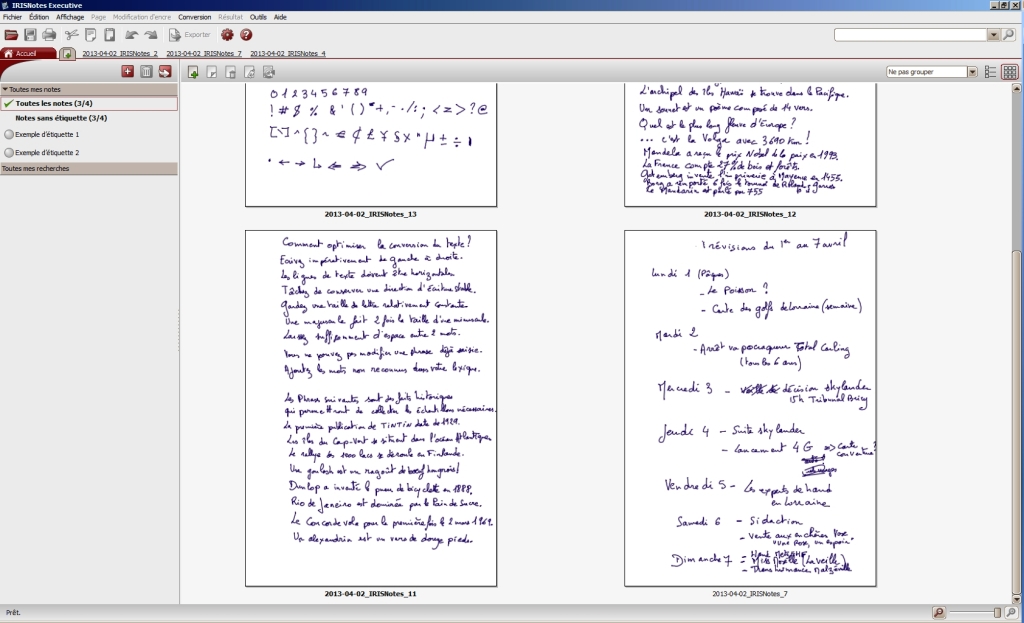 IRISNotes Executive
Fichier Édition Affichage Page Modification d'encre Conversion Résultat Outils Aide
Exporter
Accueil 2013-04-02_IRISNotes_2 2013-04-02_IRISNotes_7 2013-04-02_IRISNotes_4
Ne pas grouper
Toutes mes notes
Toutes les notes (3/4)
Notes sans étiquette (3/4)
Exemple d'étiquette 1
Exemple d'étiquette 2
Toutes mes recherches
0 1 2 3 4 5 6 7 8 9
! # $ % & ' ( ) * + , - . / : ; < = > ? @
[ \ ] ^ { } ~ € ¢ £ ¥ § × " µ ± ÷
2013-04-02_IRISNotes_13
L'archipel des îles Hawaï se trouve dans le Pacifique.
Un sonnet est un poème composé de 14 vers.
Quel est le plus long fleuve d'Europe ?
... c'est la Volga avec 3690 km !
Mandela a reçu le prix Nobel de la paix en 1993.
La France compte 27% de bois et forêts.
Gutemberg invente l'imprimerie à Mayence en 1455.
Borg a remporté 6 fois le tournoi de Roland garros
Le Mandarin est parlé par 755
2013-04-02_IRISNotes_12
Comment optimiser la conversion du texte ?
Ecrivez impérativement de gauche à droite.
Les lignes de texte doivent être horizontales
Tâchez de conserver une direction d'écriture stable.
Gardez une taille de lettre relativement constante
Une majuscule fait 2 fois la taille d'une minuscule.
Laissez suffisamment d'espace entre 2 mots.
Vous ne pouvez pas modifier une phrase déjà saisie.
Ajoutez les mots non reconnus dans votre lexique.
Les Phrases suivantes sont des faits historiques
qui permettront de collecter les échantillons nécessaires.
La première publication de TINTIN date de 1929.
Les îles du Cap-Vert se situent dans l'océan Atlantique
Le rallye des 1000 lacs se déroule en Finlande.
Une goulash est un ragoût de boeuf hongrois !
Dunlop a inventé le pneu de bicyclette en 1888.
Rio de Janeiro est dominée par le Pain de Sucre.
Le Concorde vola pour la première fois le 2 mars 1969.
Un alexandrin est un vers de douze pieds.
2013-04-02_IRISNotes_11
Prévisions du 1er au 7 avril
Lundi 1 (Pâques)
- Le Poisson ?
- Carte des golfs de Lorraine (semaine)
Mardi 2
- Arrêt Total Carling
(tous les 6 ans)
Mercredi 3 - décision skylander
15h Tribunal Briey
Jeudi 4 - Suite skylander
- Lancement 4G => Carte
couverture ?
Vendredi 5 - Les experts de hand
en Lorraine
Samedi 6 - Sidaction
- Vente aux enchères Rose
"Une Rose, un espoir"
Dimanche 7 = Hand
= Miss Moselle (La veille)
- Transhumance Malzéville
2013-04-02_IRISNotes_7
Prêt.